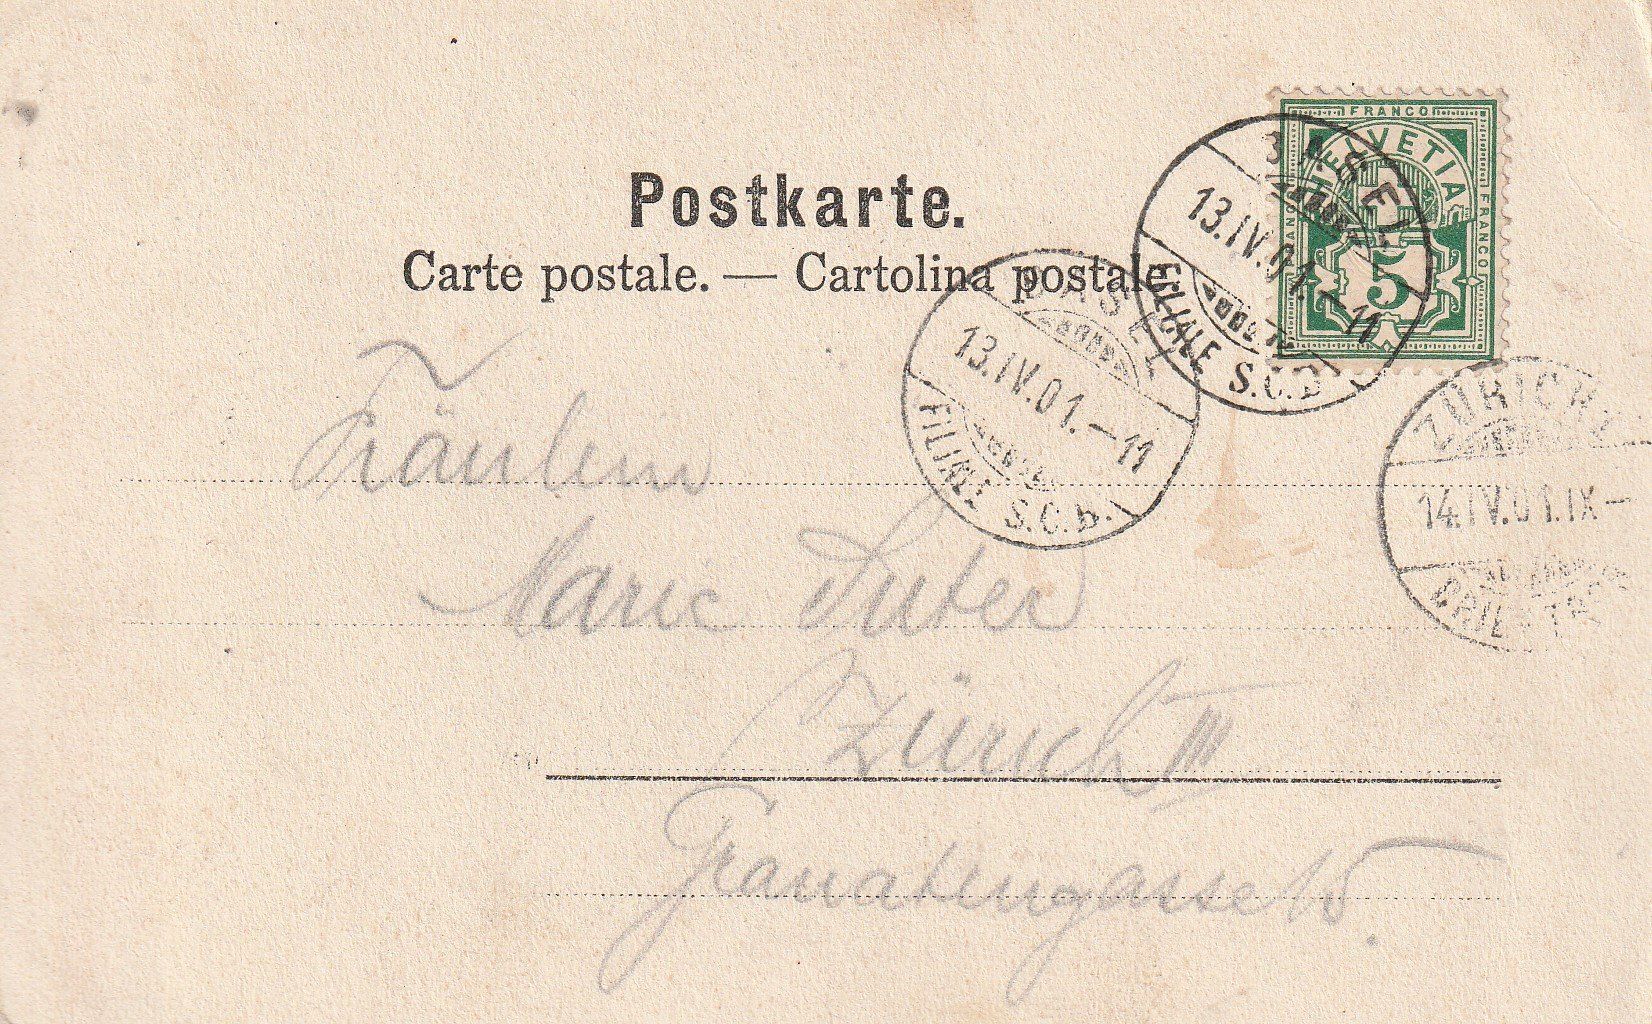 FRANCO
HELVETIA
FRANCO
FRANCO
5
Postkarte.
Carte postale. — Cartolina postale.
BASEL
13.IV.01.-11
FILIALE S.C.B.
BASEL
13.IV.01.-11
FILIALE S.C.B.
ZÜRICH
14.IV.01.IX-
Fräulein
Marie Suter
Zürich III
Granatengasse 15.